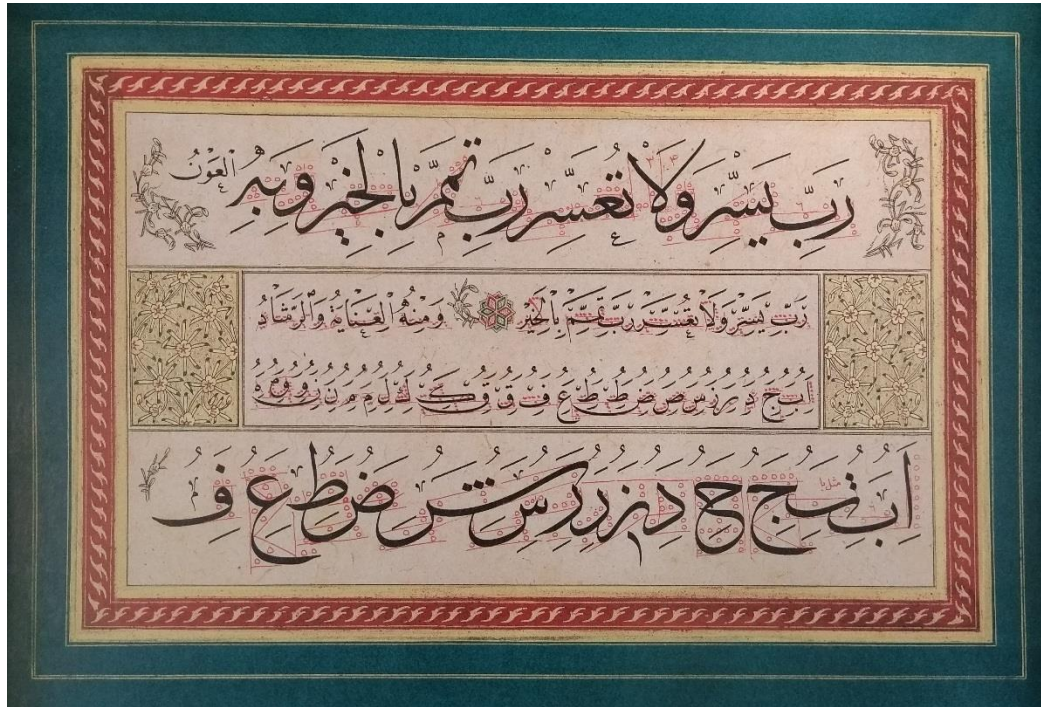 رَبِّ يَسِّرْ وَلَا تُعَسِّرْ رَبِّ تَمِّمْ بِالْخَيْرِ وَبِهِ الْعَوْنُ
رَبِّ يَسِّرْ وَلَا تُعَسِّرْ رَبِّ تَمِّمْ بِالْخَيْرِ وَمِنْهُ الْعِنَايَةُ وَالْرَشَادُ
ا ب ج د ر ز س ص ض ط ظ ع ف ق ك ل م ن و ه
ا ب ت ج ح د ز ر س ش ض ط ع ف